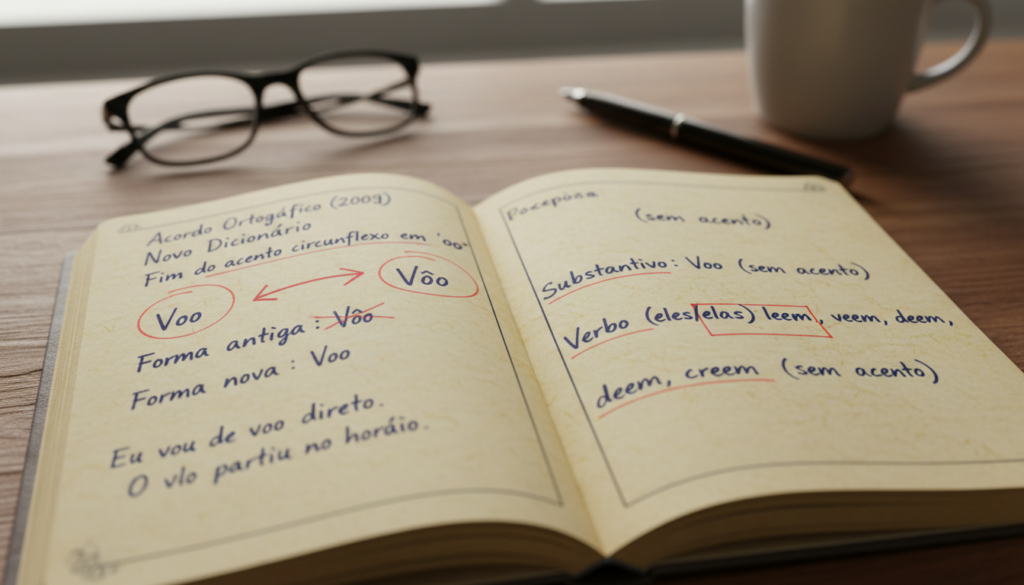 Acordo Ortogáfico (2009)
Novo Dicionário
Fim do acento circunflexo em 'oo'
Voo
Vôo
Forma antiga : Vôo
Forma nova : Voo
Eu vou de voo direto.
O vlo partiu no horáio.
(sem acento)
Substantivo: Voo (sem acento)
Verbo (eles/elas) leem, veem, deem,
deem, creem (sem acento)